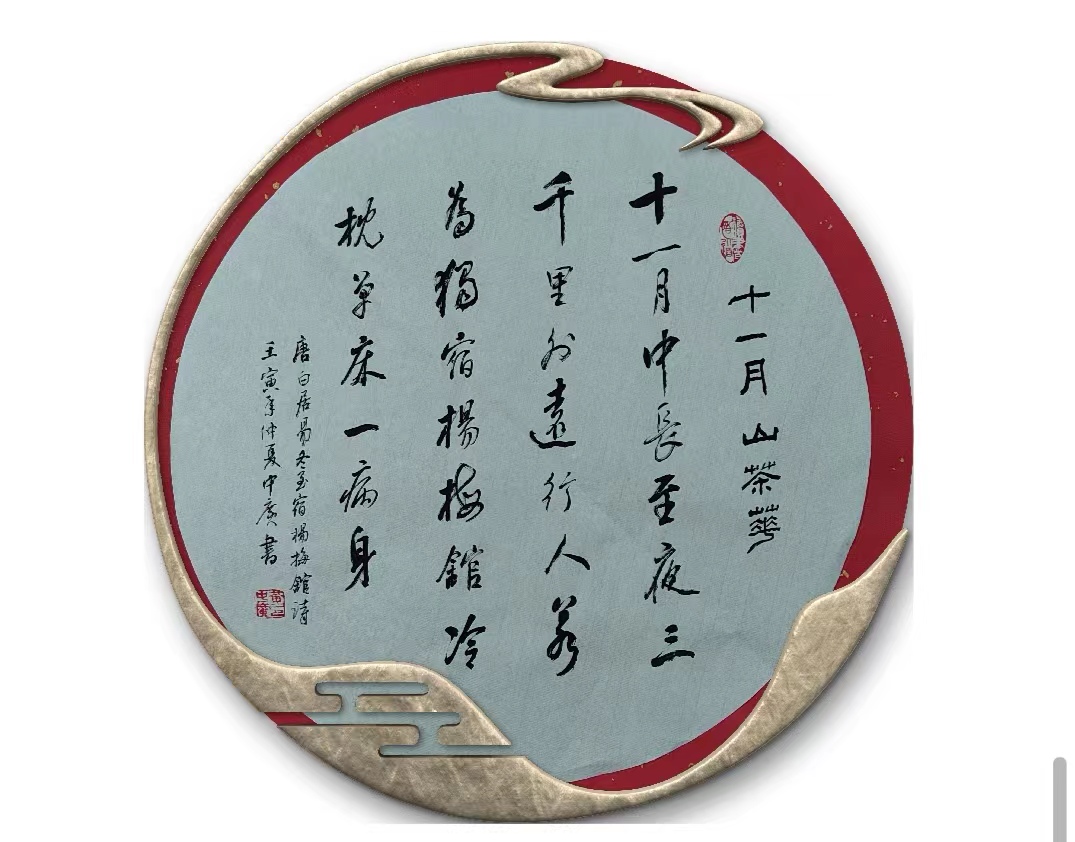 十一月山茶華
十一月中長至夜三
千里外遠行人若
為獨宿楊梅館冷
枕單床一病身
唐白居易冬至宿楊梅館詩
壬寅年仲夏中廣書